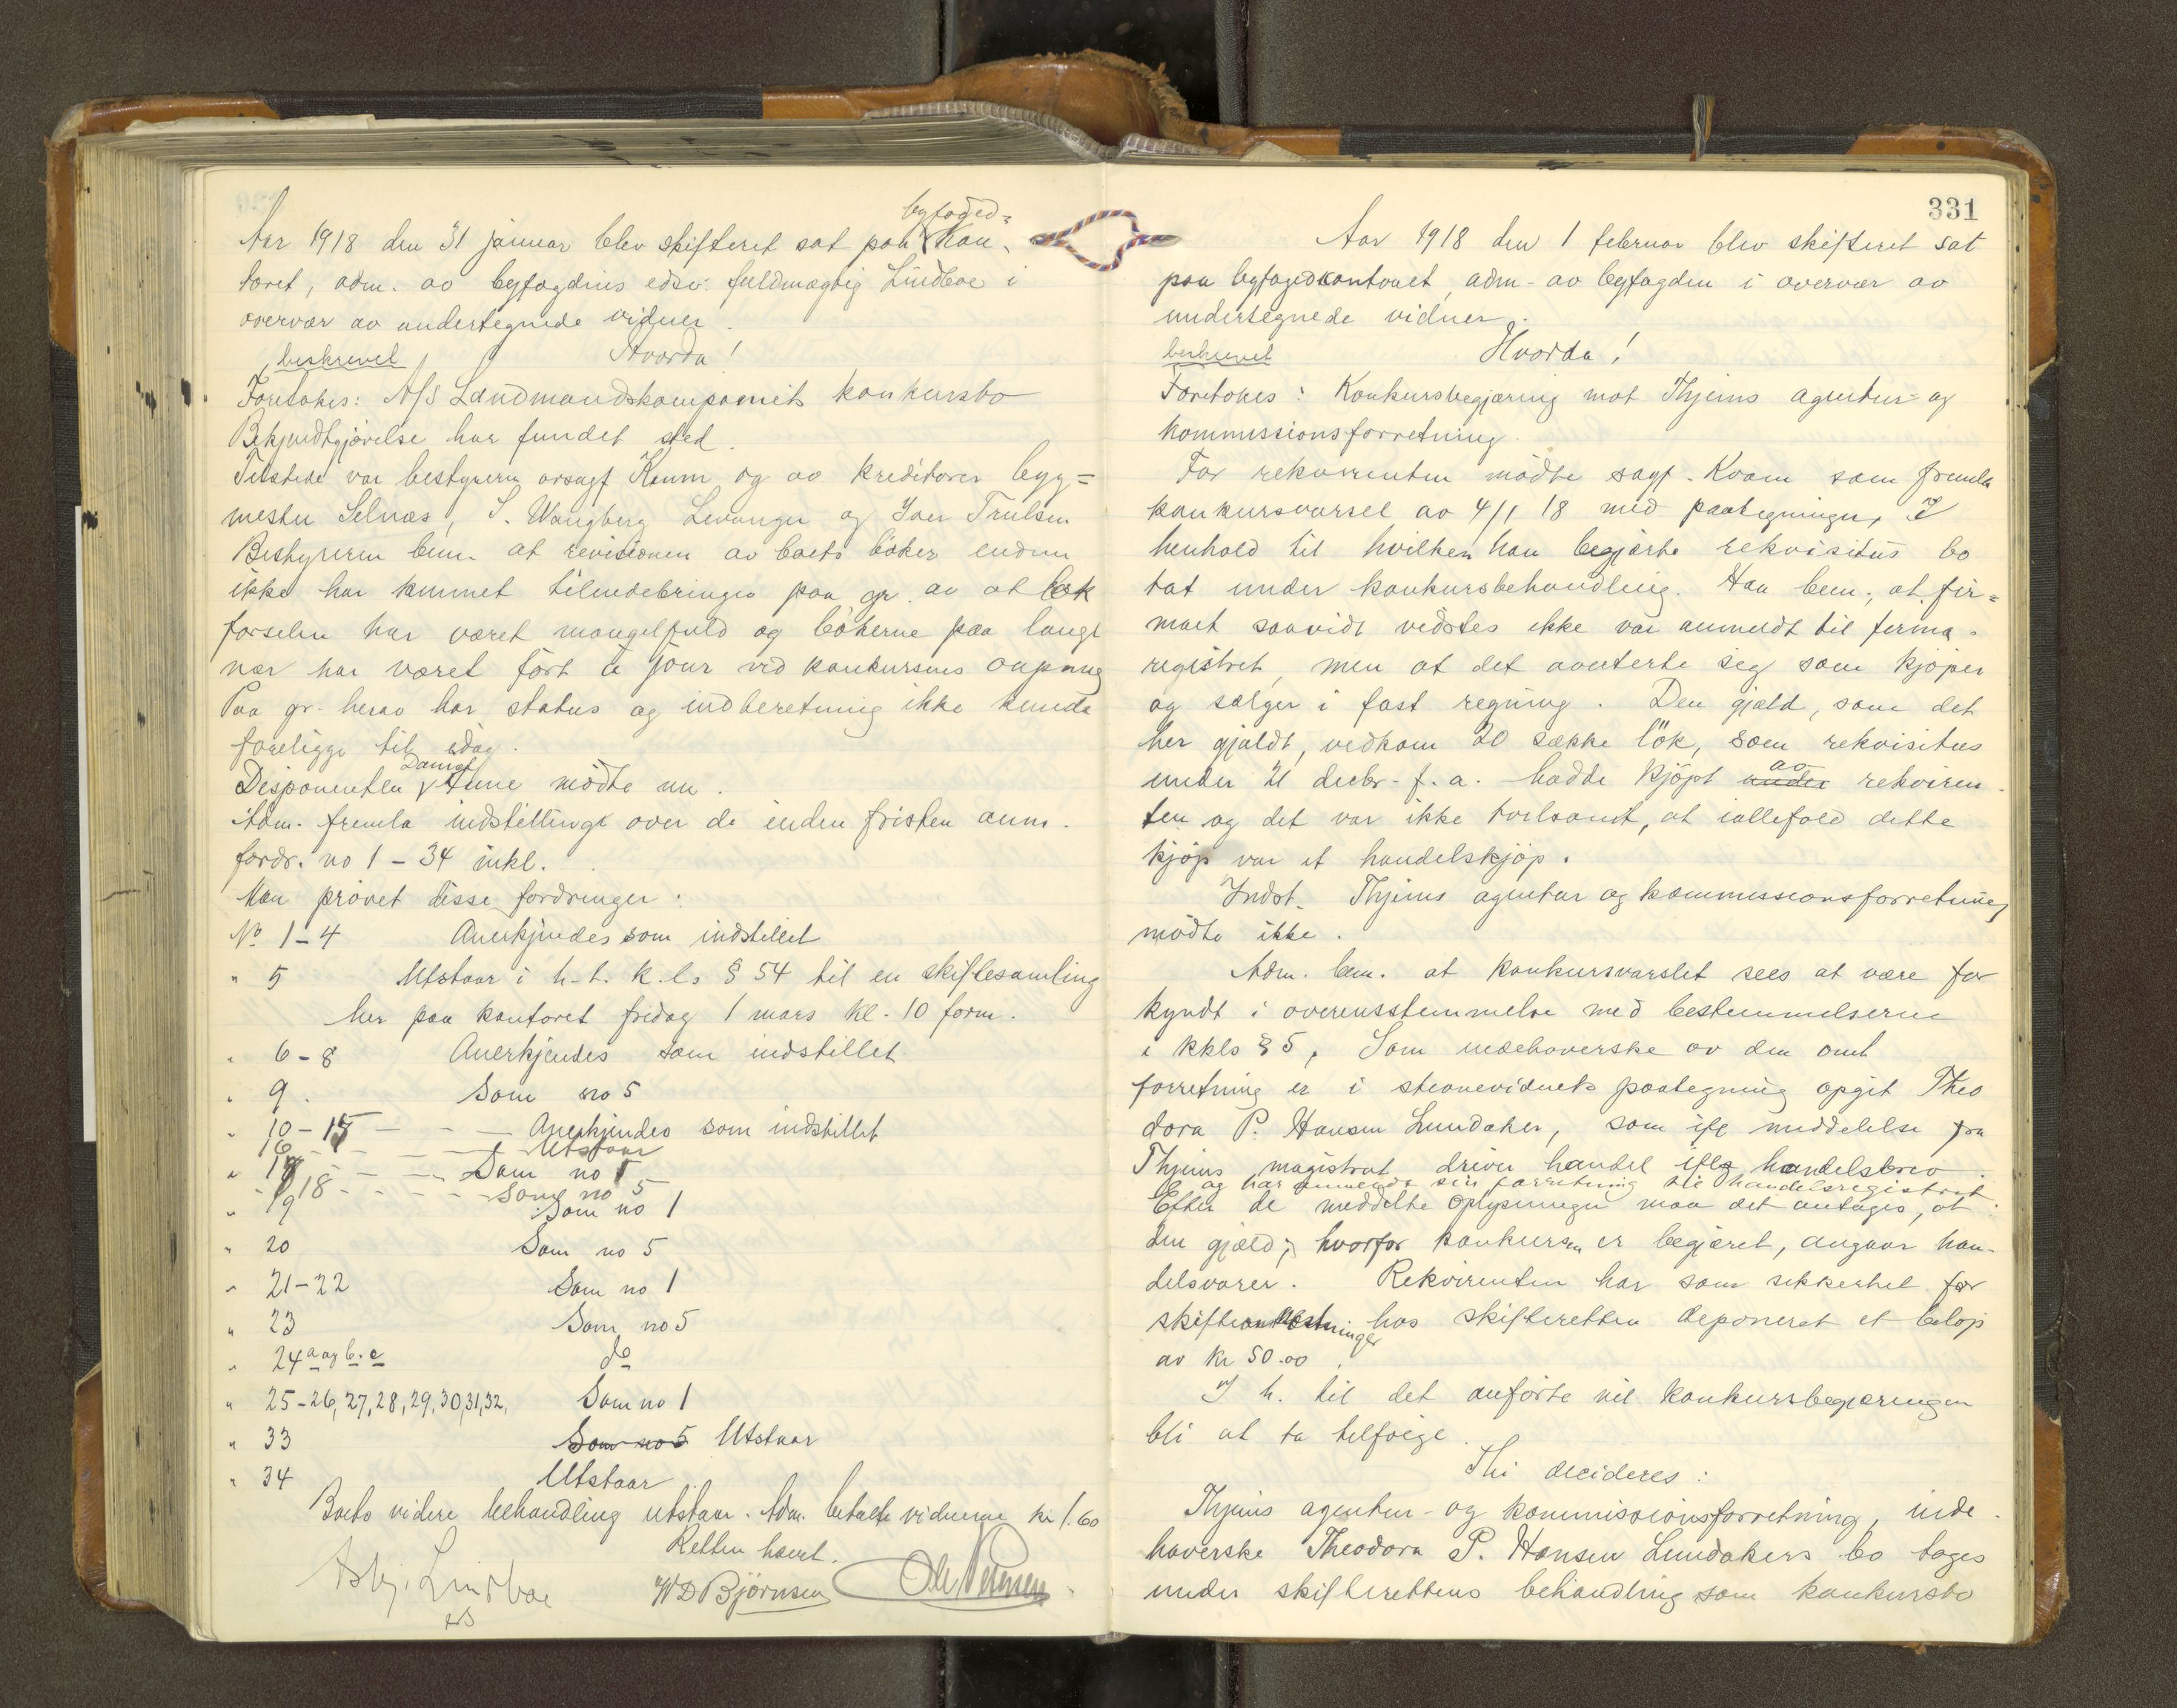 byfoged-
Aar 1918 den 31 januar blev skifteret sat paa kon-
toret, adm. av byfogdens edsv. fuldmægtig Lindboe i
overvær av undertegnede vidner.
beskrevet Hvorda!
Foretokes: A/S Landmandskompaniets konkursbo
Bekjendtgjørelse har fundet sted.
Tilstede var bestyreren orsagf Kaum og av kreditorer byg-
mester Selnæs, S. Wangberg Levanger og Iver Trulsen
Bestyreren bem. at revisionen av boets bøker endnu
ikke har kunnet tilendebringes paa gr. av at bok
førselen har været mangelfuld og bøkerne paa langt
nær har været ført a jour ved konkursens aapning
Paa gr. herav har status og indberetning ikke kunde
foreligge til idag.
Disponenten Aune mødte nu.
Adm. fremla indstillinge over de inden fristen anm.
fordr. no 1 - 34 inkl.
Man prøvet disse fordringer:
No 1-4 Anerkjendes som indstillet
" 5 Utstaar i h-t. k.ls § 54 til en skiftesamling
her paa kontoret fredag 1 mars kl. 10 form.
" 6-8 Anerkjendes som indstillet
" 9. Som no 5
" 10-15 - - - Anerkjendes som indstillet
16 - - - Utstaar
" 17 - - - Som no 1
" 18 - - - - Som no 5
" 19 Som no 1
" 20 Som no 5
" 21-22 Som no 1
" 23 Som no 5
" 24 a og b. c do
" 25-26, 27, 28, 29, 30, 31, 32, Som no 1
" 33 Som no 5 Utstaar
" 34 Utstaar
Boets videre behandling utstaar. Adm. betalte vidnerne kr 1.60
Retten hævet.
Asbj. Lindboe W D Bjørnsen Ole Petersen
331
Aar 1918 den 1 februar blev skifteret sat
paa byfogedkontoret, adm. av byfogden i overvær av
undertegnede vidner.
beskrevet Hvorda!
Foretokes: Konkursbegjæring mot Thjems agentur- og
kommissionsforretning.
For rekvirenten mødte sagf. Kvam som fremla
konkursvarsel av 4/1 18 med paategninger, I
henhold til hvilken han begjærte rekvisitus bo
tat under konkursbehandling. Han bem. at fir-
maet saavidt vidstes ikke var anmeldt til firma-
registret, men at det averterte seg som kjøper
og sælger i fast regning. Den gjæld, som det
her gjaldt, vedkom 20 sække løk, som rekvisitus
under 21 decbr. f. a. hadde kjøpt under av rekviren-
ten og det var ikke tvilsomt, at iallefald dette
kjøp var et handelskjøp.
Indst. Thjems agentur og kommissionsforretning
mødte ikke.
Adm. bem. at konkursvarslet sees at være for
kyndt i overensstemmelse med bestemmelserne
i kkls § 5. Som indehaverske av den omt
forretning er i stevnevidnets paategning opgit Theo
dora P. Hansen Lundaker, som ifl meddelelse fra
Thjems magistrat driver handel iflg handelsbrev
og har anmeldt sin forretning til handelsregistret.
Efter de meddelte oplysninger maa det antages, at
den gjæld, hvorfor konkursen er begjæret, angaar han-
delsvarer. Rekvirenten har som sikkerhet for
skifteomkostninger hos skifteretten deponeret et beløp
av kr 50.00.
I h. til det anførte vil konkursbegjæringen
bli at ta tilfølge.
Thi decideres:
Thjems agentur- og kommissionsforretning, inde-
haverske Theodora P. Hansen Lundakers bo tages
under skifterettens behandling som konkursbo